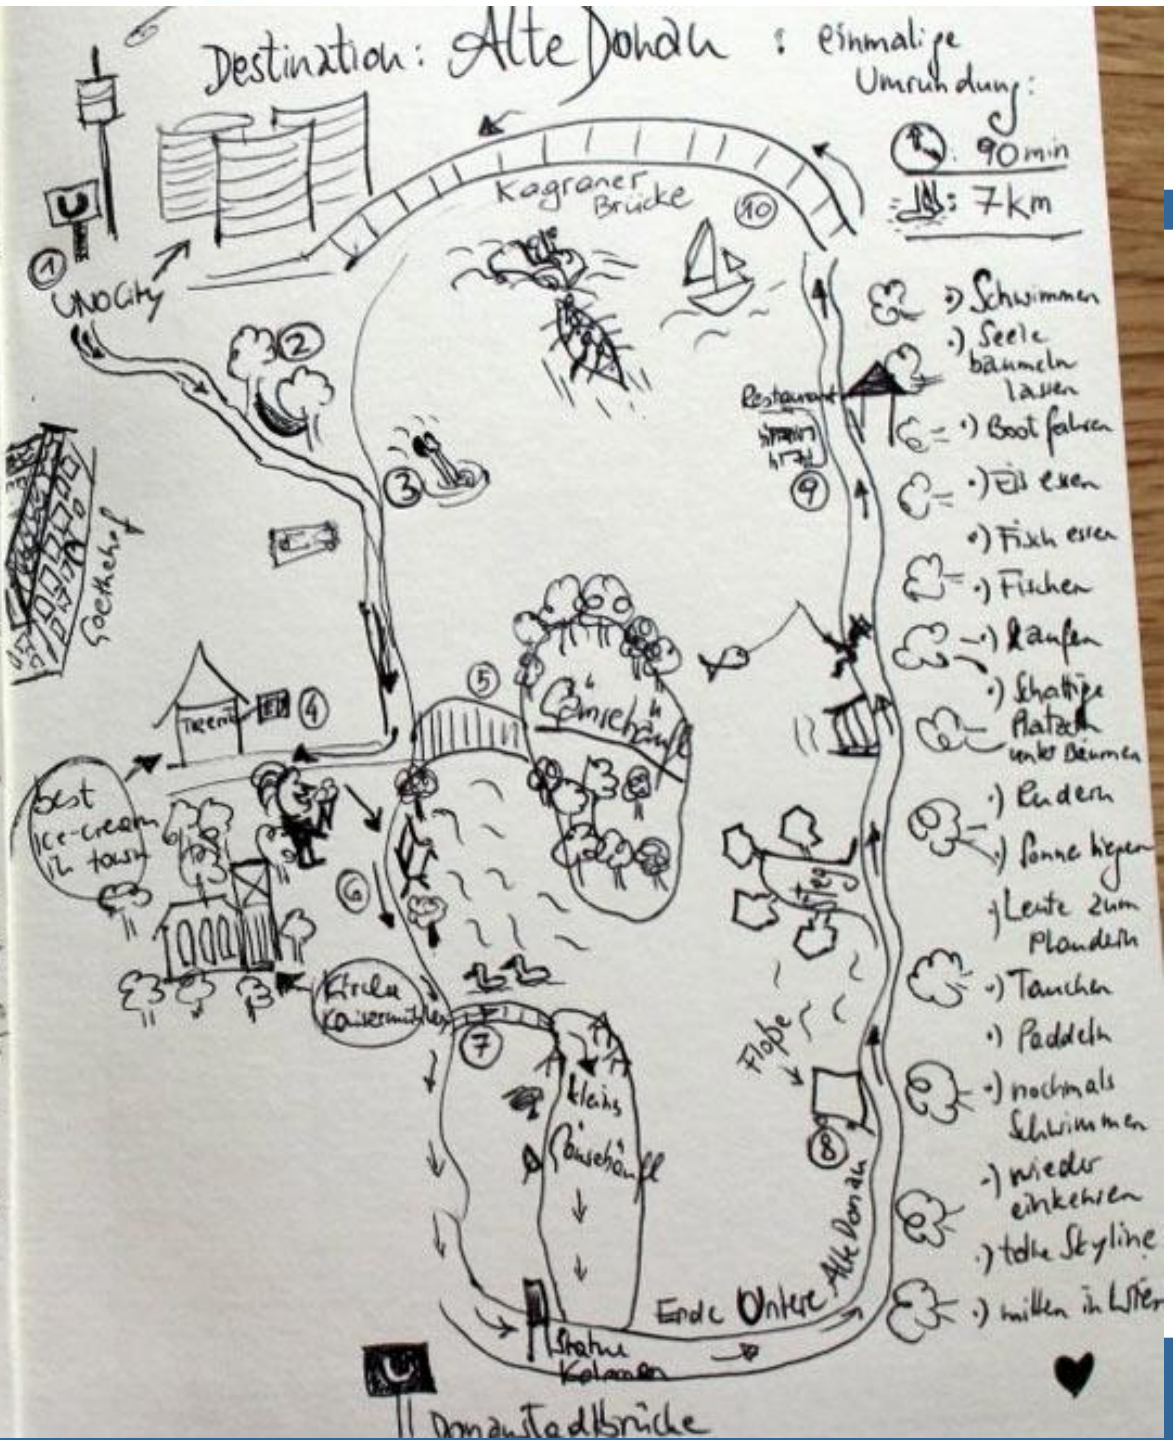 Destination: Alte Donau : einmalige
Umrundung:
: 90min
: 7km
U
1
UNOCity
Kagraner
Brücke
10
2
3
Goethehof
Restaurant
9
4
5
Gänsehäufl
best
ice-cream
in town
6
Steg
Kirche
Kaisermühlen
7
kleines
Gänsehäufl
Floße
8
Ende Untere Alte Donau
Statue
U
Donaustadtbrücke
•) Schwimmen
•) Seele
baumeln
lassen
•) Boot fahren
•) Eis essen
•) Fisch essen
•) Fischen
•) Laufen
•) Schattige
Platzln
unter Bäumen
•) Rudern
•) Sonne liegen
•) Leute zum
Plaudern
•) Tauchen
•) Paddeln
•) nochmals
Schwimmen
•) wieder
einkehren
•) tolle Skyline
•) mitten in Wien